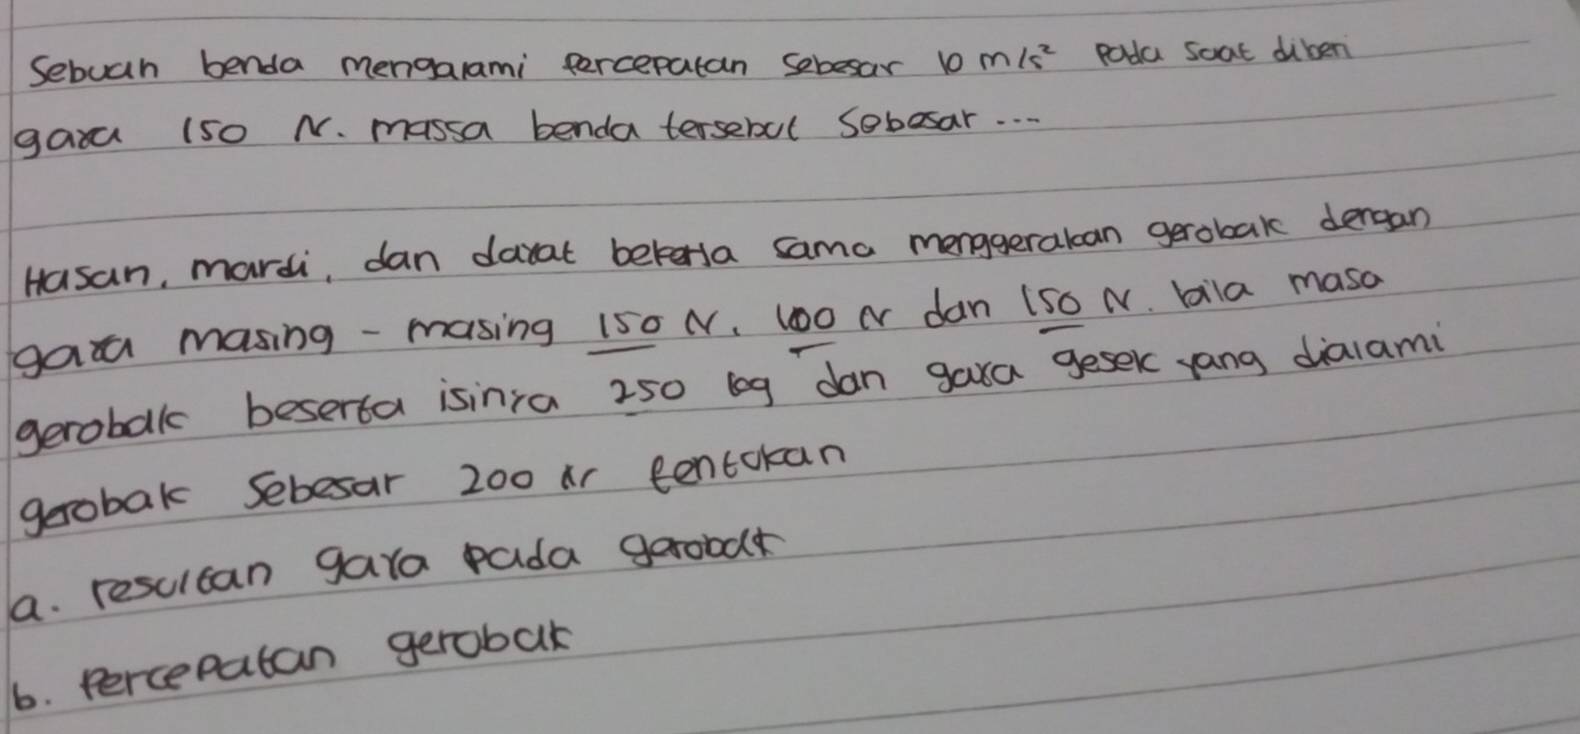 Sebuah benda mengalami percepatan sebesar 10 m/s² pada saat diberi
gaya 150 N. massa benda tersebut sebesar ...
Hasan, mardi, dan dayat bekerja sama menggerakan gerobak dengan
gaya masing - masing 150 N, 100 N dan 150 N. bila masa
gerobak beserta isinya 250 kg dan gaya gesek yang dialami
gerobak sebesar 200 N tentukan
a. resultan gaya pada gerobak
b. Percepatan gerobak